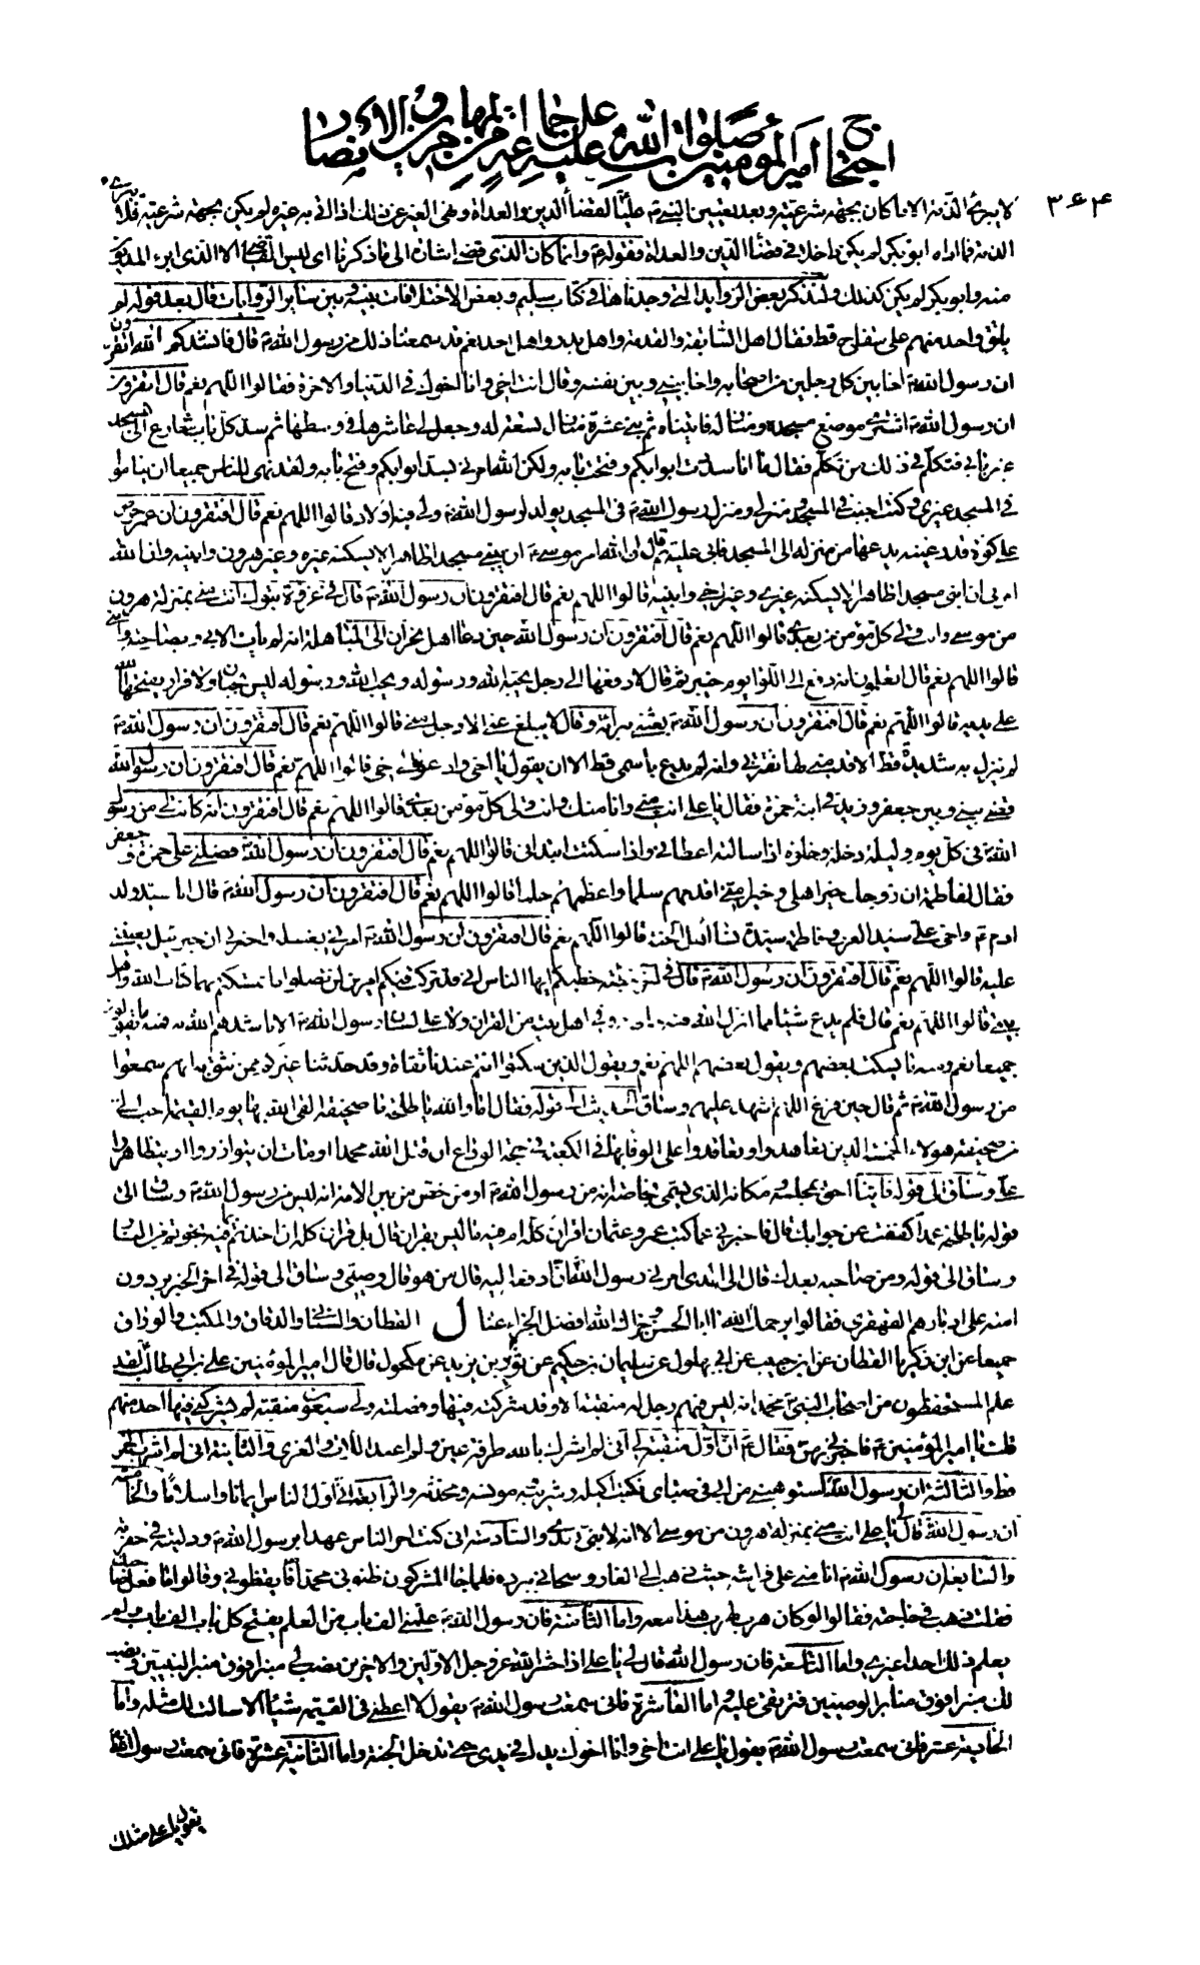 احتجاج امير المؤمنين صلوات الله عليه على جماعة من المهاجرين والانصار
٣۶۴
لا يبرئ الذمة الا ما كان بجهة شرعية وبعد تعيين النبي ص عليا لقضاء الدين والعداة ونهي الغير عن ذلك اذا اتى به غيره لم يكن بجهة شرعية فلا يبرئ
الذمة فما اداه ابو بكر لم يكن داخلا في قضاء الدين والعداة فقوله ع وانما كان الذي قضى اشارة الى ما ذكرنا اى ليس القاضي الا الذي ابرء الدين
منه وابو بكر لم يكن كذلك ولنذكر بعض الزوايد التي وجدناها في كتاب سليم وبعض الاختلافات بينه وبين ساير الروايات قال بعد قوله لم
يلق واحد منهم على منقلبي قط فقال اهل السابقة والقدمة واهل بدر واهل احد نعم قد سمعنا ذلك من رسول الله ص قال فانشدكم الله اتقرون
ان رسول الله ص اخا بين كل رجلين من اصحابه واخا بيني وبين نفسه وقال انت اخي وانا اخوك في الدنيا والاخرة فقالوا اللهم نعم قال اتقرون
ان رسول الله ص اشترى موضع مسجده ومنازله فابتناه ثم بنى عشرة منازل تسعة له وجعل لي عاشرها في وسطها ثم سد كل باب شارع الى المسجد
غير بابي فتكلم في ذلك من تكلم فقال ما انا سددت ابوابكم وفتحت بابه ولكن الله امرني بسد ابوابكم وفتح بابه ولقد نهى للناس جميعا ان يناموا
في المسجد غيري وكنت اجنب في المسجد ومنزلي ومنزل رسول الله ص في المسجد يولد لرسول الله ص ولي فيه اولاد قالوا اللهم نعم قال اتقرون ان عمر حرص
على كوة قدر عينه يدعها من منزله الى المسجد فابى عليه ثم قال ان الله امر موسى ع ان يبني مسجدا طاهرا لا يسكنه غيره وغير هرون وابنيه وان الله
امرني ان ابني مسجدا طاهرا لا يسكنه غيري وغير اخي وابنيه قالوا اللهم نعم قال اتقرون ان رسول الله ص قال في غزوة تبوك انت مني بمنزلة هرون
من موسى وانت ولي كل مؤمن من بعدي قالوا اللهم نعم قال اتقرون ان رسول الله حين دعا اهل نجران الى المباهلة انه لم يات الا بي وبصاحبتي وابني
قالوا اللهم نعم قال اتعلمون انه دفع الي اللواء يوم خيبر ثم قال لادفعنها الى رجل يحبه الله ورسوله ويحب الله ورسوله ليس بجبان ولا فرار يفتحها الله
على يديه قالوا اللهم نعم قال اتقرون ان رسول الله ص بعثني ببراءة وقال لا يبلغ عني الا رجل مني قالوا اللهم نعم قال اتقرون ان رسول الله ص
لم ينزل به شديدة قط الا قدمني لها ثقة بي وانه لم يدع باسمي قط الا ان يقول يا اخي وادعوا لي اخي قالوا اللهم نعم قال اتقرون ان رسول الله
قضى بيني وبين جعفر وزيد في ابنة حمزة فقال يا علي انت مني وانا منك وانت ولي كل مؤمن بعدي قالوا اللهم نعم قال اتقرون انه كانت لي من رسول
الله ص في كل يوم وليلة دخلة وخلوة اذا سالته اعطاني واذا سكت ابتداني قالوا اللهم نعم قال اتقرون ان رسول الله ص فضلني على حمزة وجعفر
فقال لفاطمة ان زوجك خير اهلي وخير امتي اقدمهم سلما واعظمهم حلما قالوا اللهم نعم قال اتقرون ان رسول الله ص قال انا سيد ولد
ادم ع واخي علي سيد العرب وفاطمة سيدة نساء اهل الجنة قالوا اللهم نعم قال اتقرون ان رسول الله ص امرني بغسله واخبرني ان جبرئيل يعينني
عليه قالوا اللهم نعم قال اتقرون ان رسول الله ص قال في اخر خطبة خطبكم ايها الناس اني قد تركت فيكم امرين لن تضلوا ما تمسكتم بهما كتاب الله واهل
بيتي قالوا اللهم نعم قال فلم يدع شيئا مما انزل الله فيه وفي اهل بيته من القران ولا على لسان رسول الله ص الا ناشدهم الله به فمنه ما يقولون
جميعا نعم ومنه ما يسكت بعضهم ويقول بعضهم اللهم نعم ويقول الذين سكتوا انتم عندنا ثقاة وقد حدثنا غيركم ممن نثق به انهم سمعوا
من رسول الله ص ثم قال حين فرغ اللهم اشهد عليهم وساق الحديث الى قوله فقال اما والله يا طلحة ما صحيفة القى الله بها يوم القيمة احب الي
من صحيفة هولاء الخمسة الذين تعاهدوا وتعاقدوا على الوفاء بها في الكعبة في حجة الوداع ان قتل الله محمدا او مات ان يتوازروا او يتظاهروا
علي وساق الى قوله فايتنا احق بمجلسه ومكانه الذي يسمى بخاصته من رسول الله ص او من خص من بين الامة انه ليس من رسول الله ص وساق الى
قوله يا طلحة عمدا كففت عن جوابك قال فاخبرني عما كتب عمر وعثمان اقران كله ام فيه ما ليس بقران قال بل قران كله ان اخذتم بما فيه نجوتم من النار
وساق الى قوله ومن صاحبه بعدك قال الى الذي امرني رسول الله ص ان ادفعه اليه قال من هو قال وصيي وساق الى قوله في اخر الخبر يردون
امته على ادبارهم القهقرى فقالوا يرحمك الله يا ابا الحسن وجزاك الله افضل الجزاء عنا ل القطان والسناني والدقاق والمكتب والوراق
جميعا عن ابن زكريا القطان عن ابن حبيب عن ابن بهلول عن سليمان بن حكيم عن ثور بن يزيد عن مكحول قال قال امير المؤمنين علي بن ابي طالب لقد
علم المستحفظون من اصحاب النبي محمد انه ليس فيهم رجل له منقبة الا وقد شركته فيها وفضلته ولي سبعون منقبة لم يشركني فيها احد منهم
قلت يا امير المؤمنين ع فاخبرني بهن فقال ع ان اول منقبة لي اني لم اشرك بالله طرفة عين ولم اعبد اللات والعزى والثانية اني لم اشرب الخمر
قط والثالثة ان رسول الله استوهبني من ابي في صباي فكنت اكيله وشريبه ومونسه ومحدثه والرابعة اني اول الناس ايمانا واسلاما والخامسة
ان رسول الله ص قال لي يا علي انت مني بمنزلة هرون من موسى الا انه لا نبي بعدي والسادسة اني كنت اخر الناس عهدا برسول الله ص ودليته في حفرته
والسابعة ان رسول الله ص انامني على فراشه حيث ذهب الى الغار وسجاني ببرده فلما جاء المشركون ظنوني محمدا فايقظوني وقالوا ما فعل صاحبك
فقلت ذهب في حاجته فقالوا لو كان هرب لهرب هذا معه واما الثامنة فان رسول الله ص علمني الف باب من العلم يفتح كل باب الف باب ولم
يعلم ذلك احدا غيري واما التاسعة فان رسول الله قال لي يا علي اذا حشر الله عز وجل الاولين والاخرين نصب لي منبر فوق منبر النبيين ونصب
لك منبر فوق منابر الوصيين فترتقي عليه واما العاشرة فاني سمعت رسول الله ص يقول لا اعطى في القيمة شيئا الا سالت لك مثله واما
الحادية عشر فاني سمعت رسول الله ص يقول يا علي انت اخي وانا اخوك يدك في يدي حتى تدخل الجنة واما الثانية عشرة فاني سمعت رسول الله
يقول يا علي مثلك